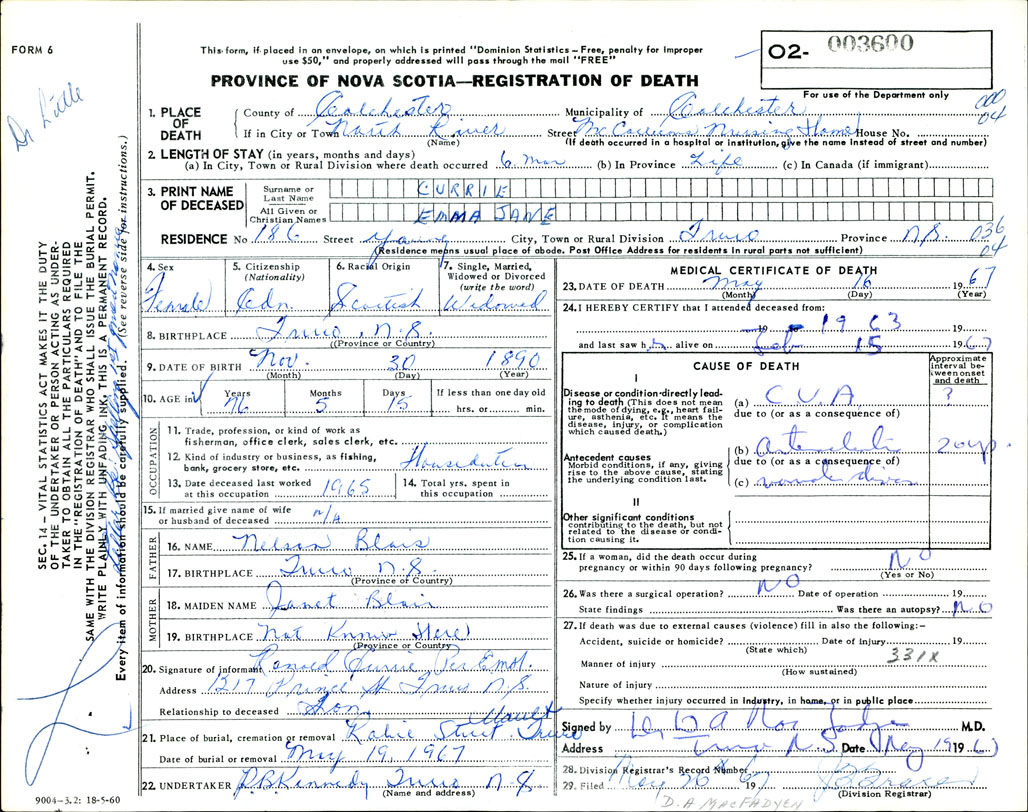 FORM 6
This form, if placed in an envelope, on which is printed "Dominion Statistics – Free, penalty for improper
use $50," and properly addressed will pass through the mail "FREE"
PROVINCE OF NOVA SCOTIA—REGISTRATION OF DEATH
02- 003600
For use of the Department only
000
04
Dr Little
SEC. 14 – VITAL STATISTICS ACT MAKES IT THE DUTY
OF THE UNDERTAKER OR PERSON ACTING AS UNDER-
TAKER TO OBTAIN ALL THE PARTICULARS REQUIRED
IN THE "REGISTRATION OF DEATH" AND TO FILE THE
SAME WITH THE DIVISION REGISTRAR WHO SHALL ISSUE THE BURIAL PERMIT.
WRITE PLAINLY WITH UNFADING INK, THIS IS A PERMANENT RECORD.
Every item of information should be carefully supplied. (See reverse side for instructions.)
1. PLACE OF DEATH
County of Colchester Municipality of Colchester
If in City or Town North River Street Nursing Home House No.
(Name) (If death occurred in a hospital or institution, give the name instead of street and number)
2. LENGTH OF STAY (in years, months and days)
(a) In City, Town or Rural Division where death occurred 6 mos (b) In Province Life (c) In Canada (if immigrant)
3. PRINT NAME OF DECEASED
Surname or Last Name CURRIE
All Given or Christian Names EMMA JANE
RESIDENCE No 186 Street Young City, Town or Rural Division Truro Province N.S. 036
04
(Residence means usual place of abode. Post Office Address for residents in rural parts not sufficient)
4. Sex Female
5. Citizenship (Nationality) Cdn.
6. Racial Origin Scottish
7. Single, Married, Widowed or Divorced (write the word) Widowed
8. BIRTHPLACE Truro, N.S.
(Province or Country)
9. DATE OF BIRTH Nov. 30 1890
(Month) (Day) (Year)
10. AGE in Years 76 Months 5 Days 15 If less than one day old hrs. or min.
OCCUPATION
11. Trade, profession, or kind of work as
fisherman, office clerk, sales clerk, etc.
12. Kind of industry or business, as fishing,
bank, grocery store, etc. Houseduties
13. Date deceased last worked
at this occupation 1965
14. Total yrs. spent in
this occupation
15. If married give name of wife
or husband of deceased n/a
FATHER
16. NAME Nelson Blair
17. BIRTHPLACE Truro N.S.
(Province or Country)
MOTHER
18. MAIDEN NAME Janet Blair
19. BIRTHPLACE Not Known Here
(Province or Country)
20. Signature of informant Ronald Currie Per
Address 1317 Prince St Truro N.S.
Relationship to deceased Son
21. Place of burial, cremation or removal Robie Street Vault Truro
Date of burial or removal May 19, 1967
22. UNDERTAKER P.B. Kennedy Truro N.S.
(Name and address)
9004-3.2: 18-5-60
MEDICAL CERTIFICATE OF DEATH
23. DATE OF DEATH May 16 1967
(Month) (Day) (Year)
24. I HEREBY CERTIFY that I attended deceased from:
19 1963 19
and last saw h alive on Feb 15 1967
CAUSE OF DEATH
Approximate interval between onset and death
I
Disease or condition directly lead-
ing to death (This does not mean
the mode of dying, e.g., heart fail-
ure, asthenia, etc. It means the
disease, injury, or complication
which caused death.)
(a) C.V.A ?
due to (or as a consequence of)
Antecedent causes
Morbid conditions, if any, giving
rise to the above cause, stating
the underlying condition last.
(b) 20 yr
due to (or as a consequence of)
(c)
II
Other significant conditions
contributing to the death, but not
related to the disease or condi-
tion causing it.
25. If a woman, did the death occur during
pregnancy or within 90 days following pregnancy? NO
(Yes or No)
26. Was there a surgical operation? NO Date of operation 19
State findings Was there an autopsy? NO
27. If death was due to external causes (violence) fill in also the following:–
Accident, suicide or homicide? Date of injury 19
(State which)
331X
Manner of injury
(How sustained)
Nature of injury
Specify whether injury occurred in Industry, in home, or in public place
Signed by Dr D A M.D.
Address Truro N.S. Date May 19 1967
28. Division Registrar's Record Number
29. Filed May 1967
(Division Registrar)
D. A MACFADYEN